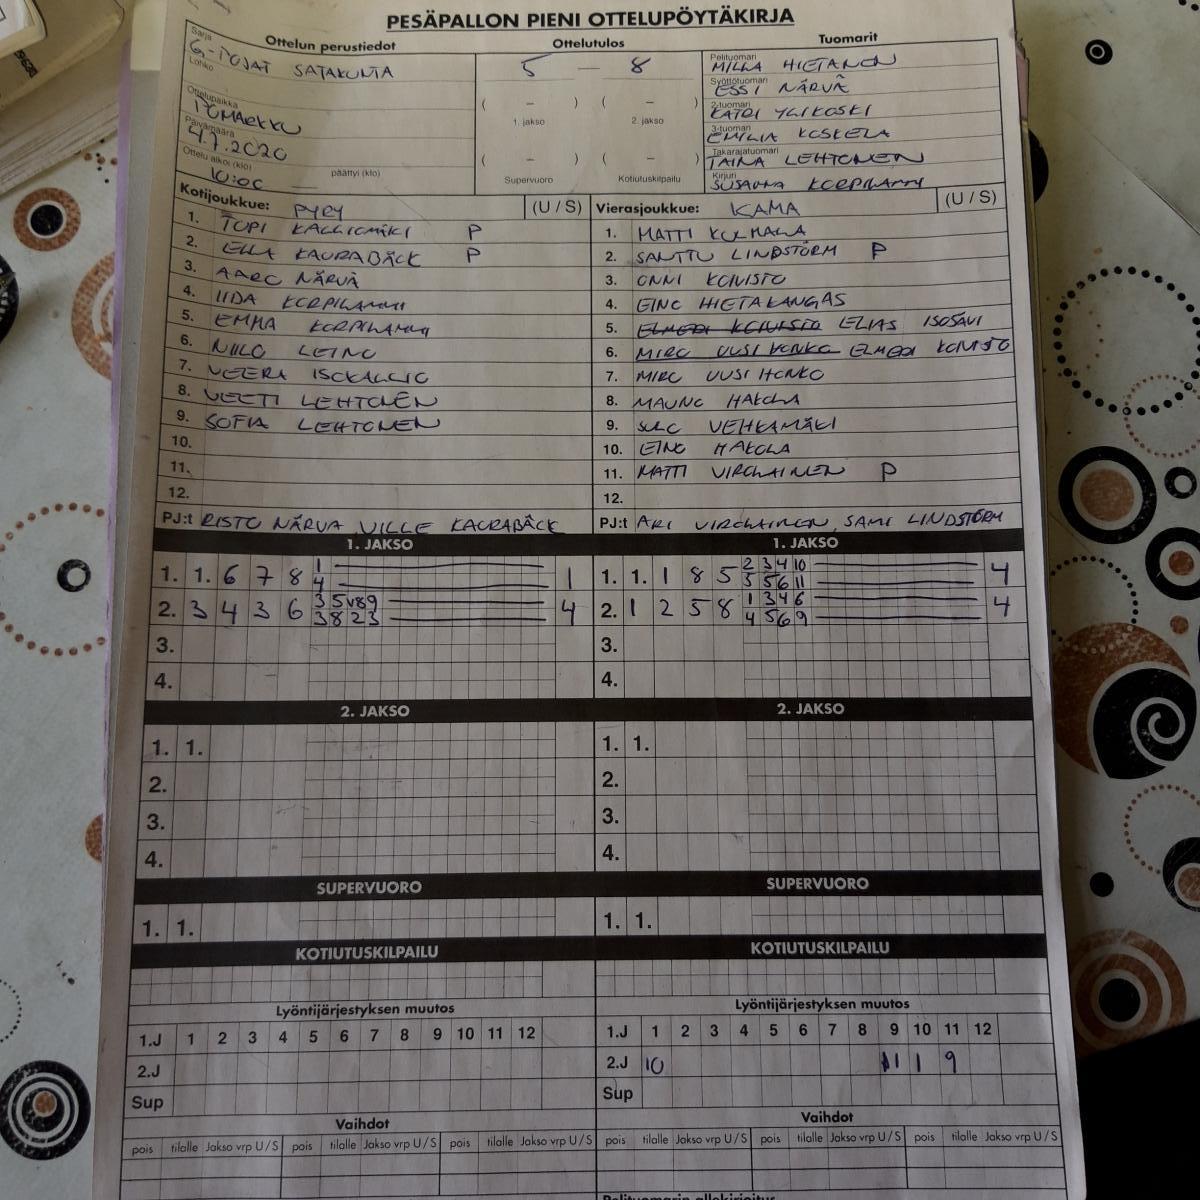 PESÄPALLON PIENI OTTELUPÖYTÄKIRJA
Ottelun perustiedot Ottelutulos Tuomarit
Sarja G-POJAT SATAKUNTA
Lohko
Ottelupaikka POMARKKU
Päivämäärä 4.7.2020
Ottelu alkoi (klo) 10:00 päättyi (klo)
5 — 8
( – ) ( – )
1. jakso 2. jakso
( – ) ( – )
Supervuoro Kotiutuskilpailu
Pelituomari MILLA HIETANEN
Syöttötuomari ESSI NÄRVÄ
2-tuomari KATRI YLIKOSKI
3-tuomari EMILIA KOSKELA
Takarajatuomari TAINA LEHTONEN
Kirjuri SUSANNA KORPILAMMI
Kotijoukkue: PYRY (U / S)
1. TOPI KALLIOMÄKI P
2. ELLA KAURABÄCK P
3. AARO NÄRVÄ
4. IIDA KORPILAMMI
5. EMMA KORPILAMMI
6. NIILO LEINO
7. VEERA ISOKALLIO
8. VEETI LEHTONEN
9. SOFIA LEHTONEN
10.
11.
12.
PJ:t RISTO NÄRVÄ, VILLE KAURABÄCK
Vierasjoukkue: KAMA (U / S)
1. MATTI KULMALA
2. SANTTU LINDSTÖRM P
3. ONNI KOIVISTO
4. EINO HIETAKANGAS
5. ELMERI KOIVISTO ELIAS ISOSAVI
6. MIRO UUSIHONKO ELMERI KOIVISTO
7. MIRO UUSIHONKO
8. MAUNO HAKOLA
9. SULO VEHKAMÄKI
10. EINO HAKOLA
11. MATTI VIROLAINEN P
12.
PJ:t ARI VIROLAINEN, SAMI LINDSTÖRM
1. JAKSO
1. 1. 6 7 8 1 1
4
2. 3 4 3 6 4
3 8 2 3
3.
4.
1. JAKSO
1. 1. 1 8 5 2 3 4 10 4
5 5 6 11
2. 1 2 5 8 1 3 4 6 4
4 5 6 9
3.
4.
2. JAKSO
1. 1.
2.
3.
4.
2. JAKSO
1. 1.
2.
3.
4.
SUPERVUORO
1. 1.
SUPERVUORO
1. 1.
KOTIUTUSKILPAILU
KOTIUTUSKILPAILU
Lyöntijärjestyksen muutos
1.J 1 2 3 4 5 6 7 8 9 10 11 12
2.J
Sup
Lyöntijärjestyksen muutos
1.J 1 2 3 4 5 6 7 8 9 10 11 12
2.J 10 11 1 9
Sup
Vaihdot
pois tilalle Jakso vrp U / S pois tilalle Jakso vrp U / S pois tilalle Jakso vrp U / S
Vaihdot
pois tilalle Jakso vrp U / S pois tilalle Jakso vrp U / S pois tilalle Jakso vrp U / S
Pelituomarin allekirjoitus